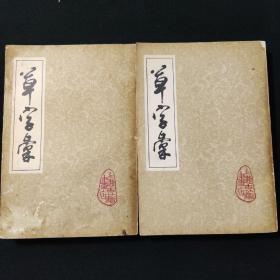 草字彙
草字彙